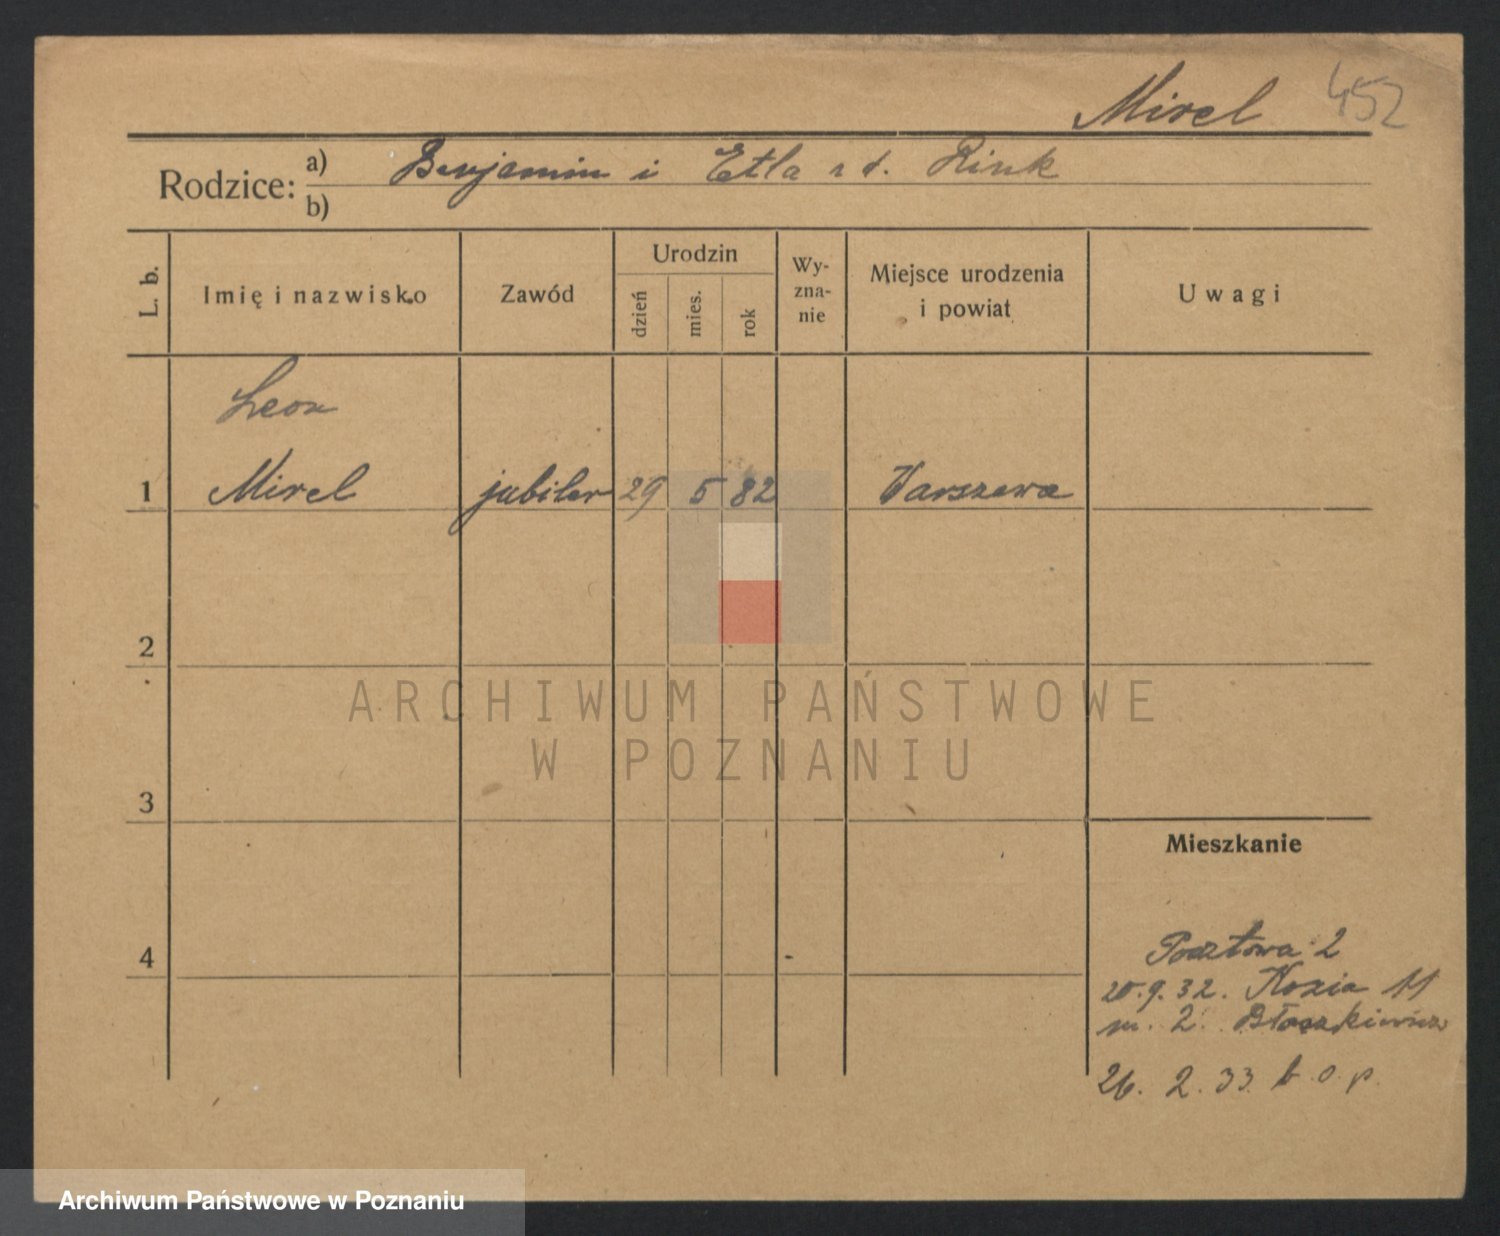 Mirel 452
Rodzice: a) Benjamin i Etla Rink
b)
L. b.
Imię i nazwisko
Zawód
Urodzin
dzień
mies.
rok
Wy-
zna-
nie
Miejsce urodzenia
i powiat
Uwagi
Leon
1 Mirel jubiler 29 5 82 Warszawa
2
ARCHIWUM PAŃSTWOWE
W POZNANIU
3
Mieszkanie
4
Pocztowa 2
20.9.32. Kozia 11
m. 2. Błaszkiewicz
26. 2. 33. b. o. p.
Archiwum Państwowe w Poznaniu